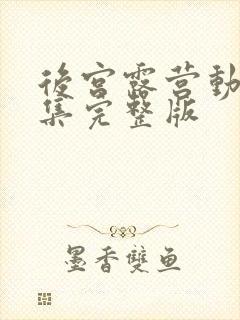 後宮露营動
集完整版
墨香雙鱼